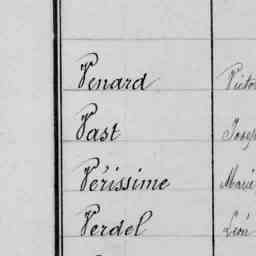 Venard Victo
Vast Josep
Vérissime Marie
Verdel Léon